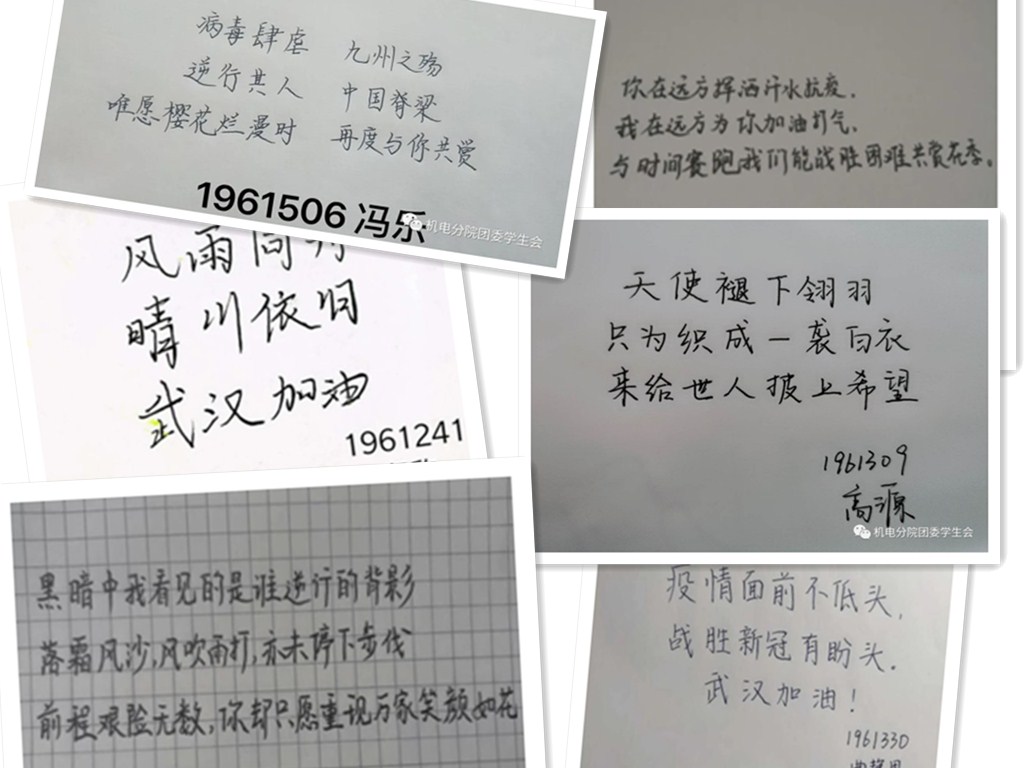 病毒肆虐 九州之殇
逆行共人 中国脊梁
唯愿樱花烂漫时 再度与你共赏
1961506 冯乐
机电分院团委学生会
你在远方挥洒汗水抗疫.
我在远方为你加油打气.
与时间赛跑我们能战胜困难共赏花季.
风雨同舟
晴川依旧
武汉加油
1961241
天使褪下翎羽
只为织成一袭白衣
来给世人披上希望
1961309
高源
机电分院团委学生会
黑暗中我看见的是谁逆行的背影
落霜风沙,风吹雨打,亦未停下步伐
前程艰险无数,你却只愿重现万家笑颜如花
疫情面前不低头,
战胜新冠有盼头.
武汉加油!
1961330